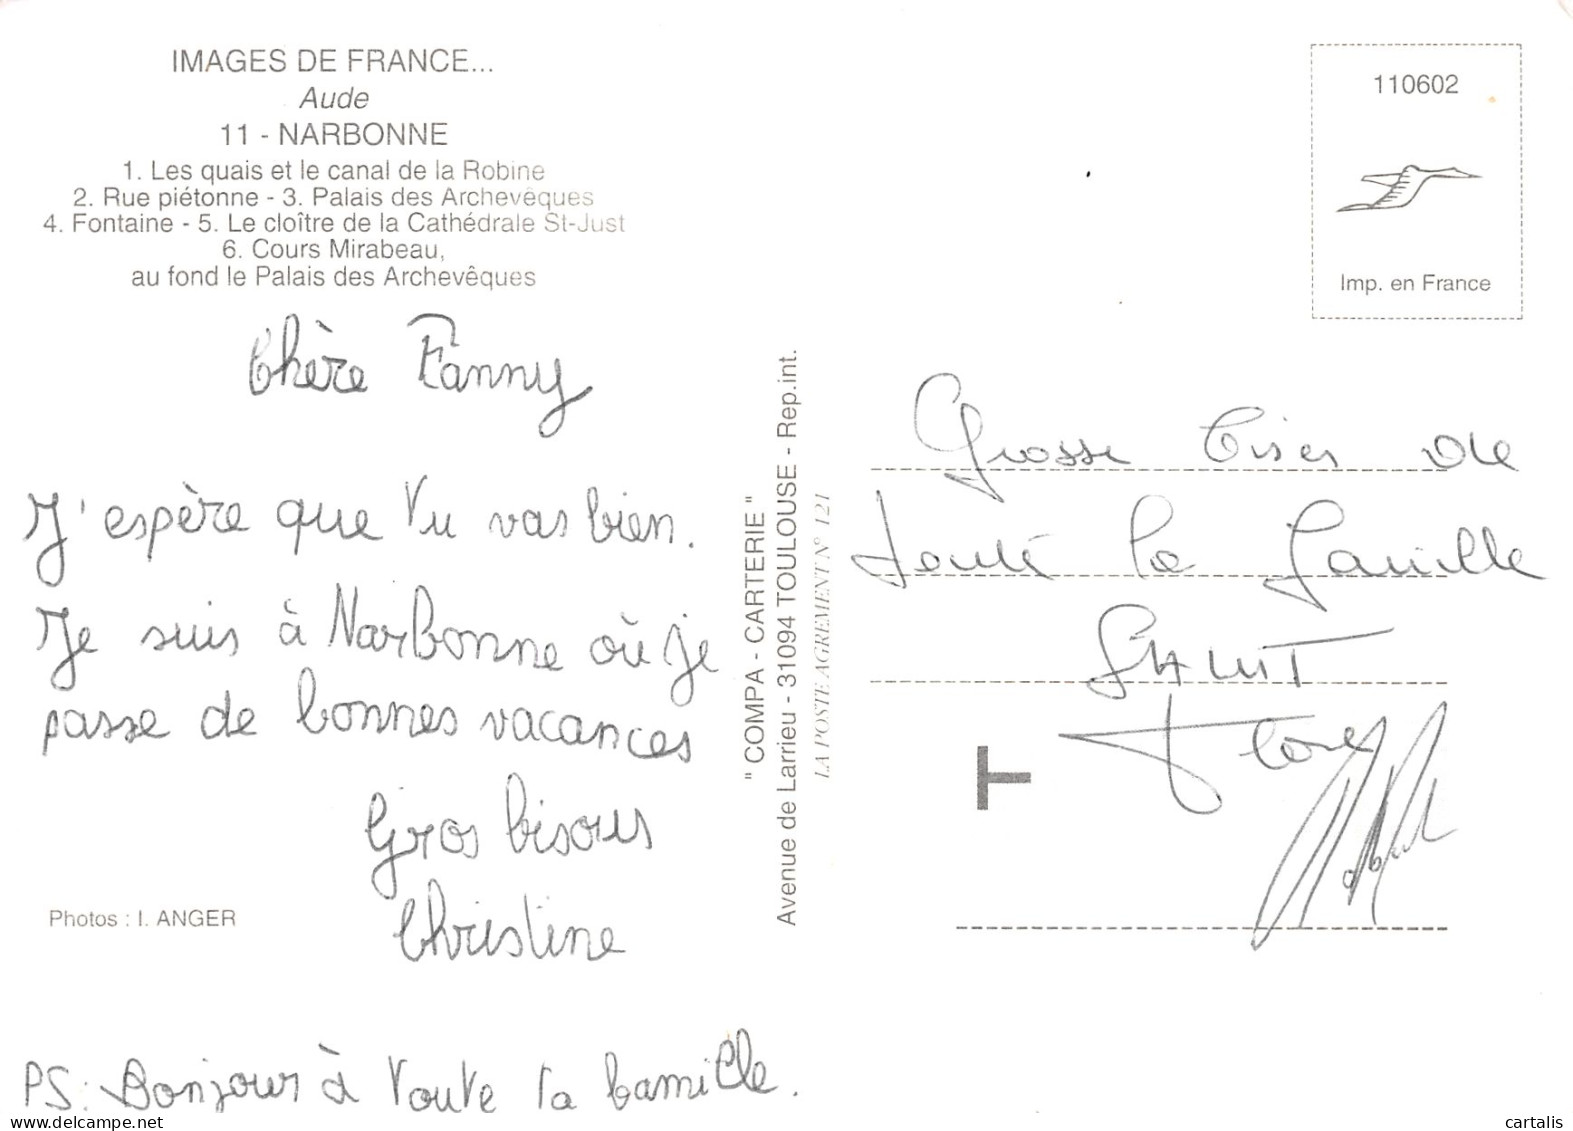 IMAGES DE FRANCE...
Aude
11 - NARBONNE
1. Les quais et le canal de la Robine
2. Rue piétonne - 3. Palais des Archevêques
4. Fontaine - 5. Le cloître de la Cathédrale St-Just
6. Cours Mirabeau,
au fond le Palais des Archevêques
Chère Fanny
J'espère que tu vas bien.
Je suis à Narbonne où je
passe de bonnes vacances
Gros bisous
Christine
Photos : I. ANGER
PS: Bonjour à toute la famille.
" COMPA - CARTERIE "
Avenue de Larrieu - 31094 TOULOUSE - Rep.int.
LA POSTE AGREMENT N° 121
110602
Imp. en France
Grosse bises de
toute la famille
T
cartalis